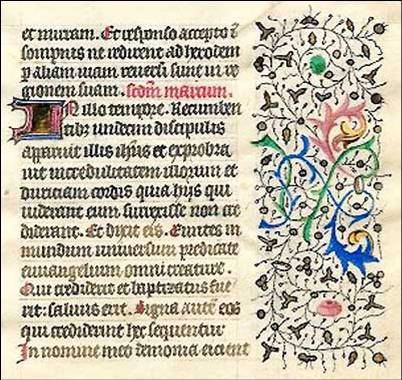 et mirram. Et responso accepto ī
sompnis ne redirent ad herodem
p aliam uiam reuersi sunt in re
gionem suam. Scdm marcum.
IN illo tempore. Recumben
tibz undecim discipulis
apparuit illis ihsus et exprobra
uit incredulitatem illorum et
duriciam cordis quia hijs qui
uiderant eum surrexisse non cre
diderant. Et dixit eis. Euntes in
mundum uniuersum predicate
euuangelium omni creature.
Qui crediderit et baptizatus fue
rit: saluus erit. Signa autē eos
qui crediderint hec sequentur
In nomine meo demonia eicient